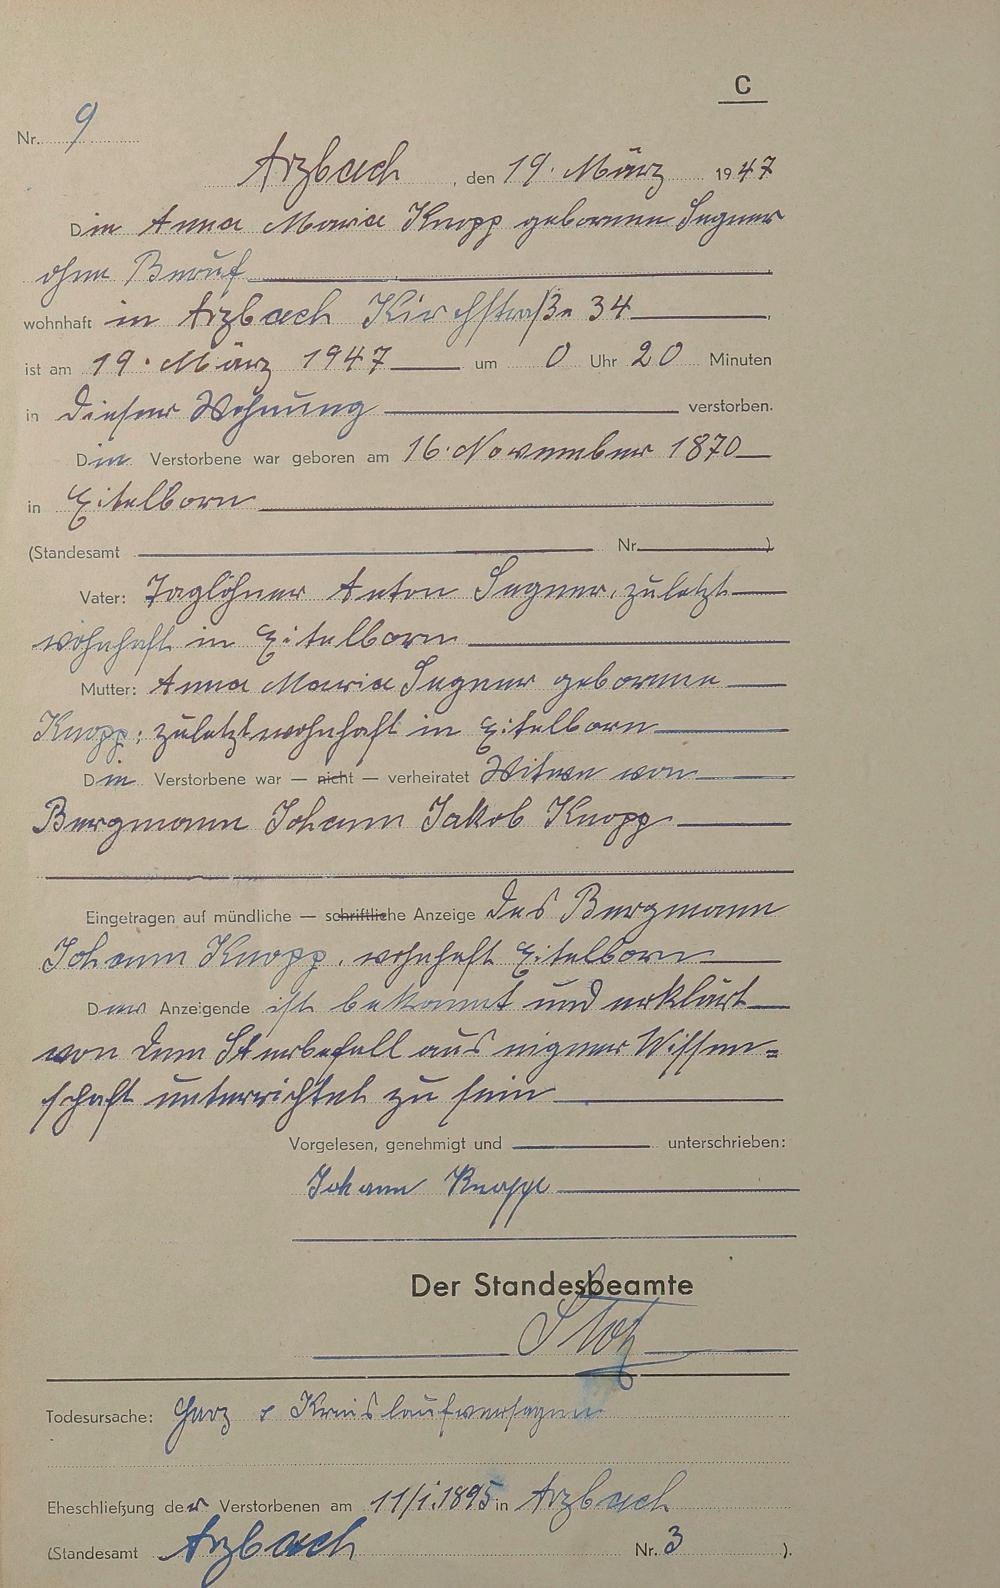 C
Nr. 9
Arzbach, den 19. März 1947
Die Anna Maria Knopp geborene Segner
ohne Beruf
wohnhaft in Arzbach Kirchstraße 34,
ist am 19. März 1947 um 0 Uhr 20 Minuten
in dieser Wohnung verstorben.
Die Verstorbene war geboren am 16. November 1870
in Eitelborn
(Standesamt Nr. )
Vater: Taglöhner Anton Segner, zuletzt
wohnhaft in Eitelborn
Mutter: Anna Maria Segner geborene
Knopp, zuletzt wohnhaft in Eitelborn
Die Verstorbene war — nicht — verheiratet Witwe von
Bergmann Johann Jakob Knopp
Eingetragen auf mündliche — schriftliche Anzeige des Bergmann
Johann Knopp, wohnhaft Eitelborn
Der Anzeigende ist bekannt und erklärt
von dem Sterbefall aus eigner Wissen=
schaft unterrichtet zu sein
Vorgelesen, genehmigt und unterschrieben:
Johann Knopp
Der Standesbeamte
Todesursache: Herz & Kreislaufversagen
Eheschließung der Verstorbenen am 11/1.1895 in Arzbach
(Standesamt Arzbach Nr. 3 ).